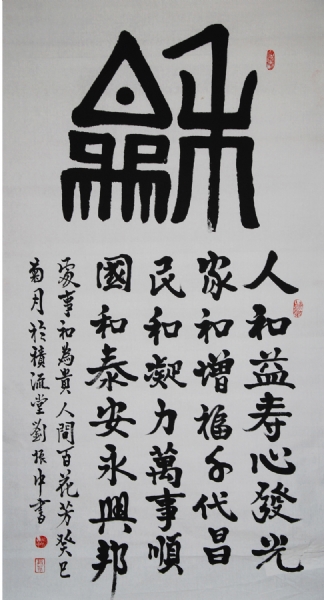 龢
人和益寿心發光
家和增福千代昌
民和凝力萬事順
國和泰安永興邦
處事和為貴人間百花芳癸巳
菊月於積流堂劉振中書